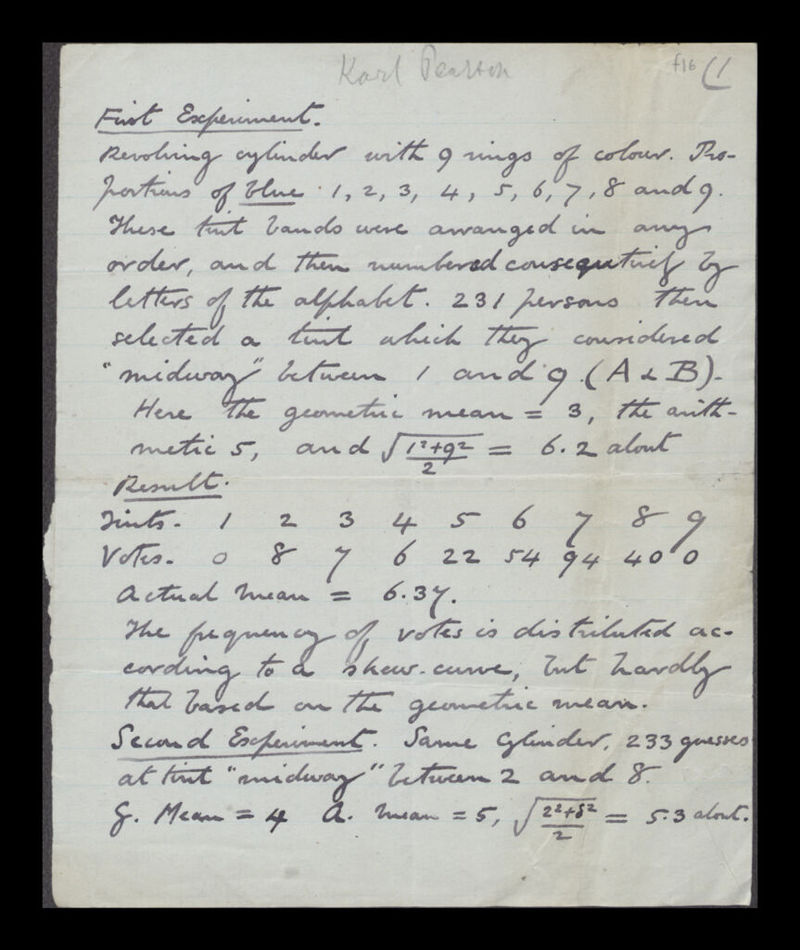 Karl Pearson
f16 (1
First Experiment.
Revolving cylinder with 9 rings of colour. Pro-
portions of blue 1, 2, 3, 4, 5, 6, 7, 8 and 9.
These tint bands were arranged in any
order, and then numbered consequtively by
letters of the alphabet. 231 persons then
selected a tint which they considered
"midway" between 1 and 9 (A & B).
Here the geometric mean = 3, the arith-
metic 5, and √(1²+9²/2) = 6.2 about
Result.
Tints. 1 2 3 4 5 6 7 8 9
Votes. 0 8 7 6 22 54 94 40 0
Actual mean = 6.37.
The frequency of votes is distributed ac-
cording to a skew-curve, but hardly
that based on the geometric mean.
Second Experiment. Same cylinder, 233 guesses
at tint "midway" between 2 and 8.
G. Mean = 4 A. mean = 5, √(2²+8²/2) = 5.3 about.